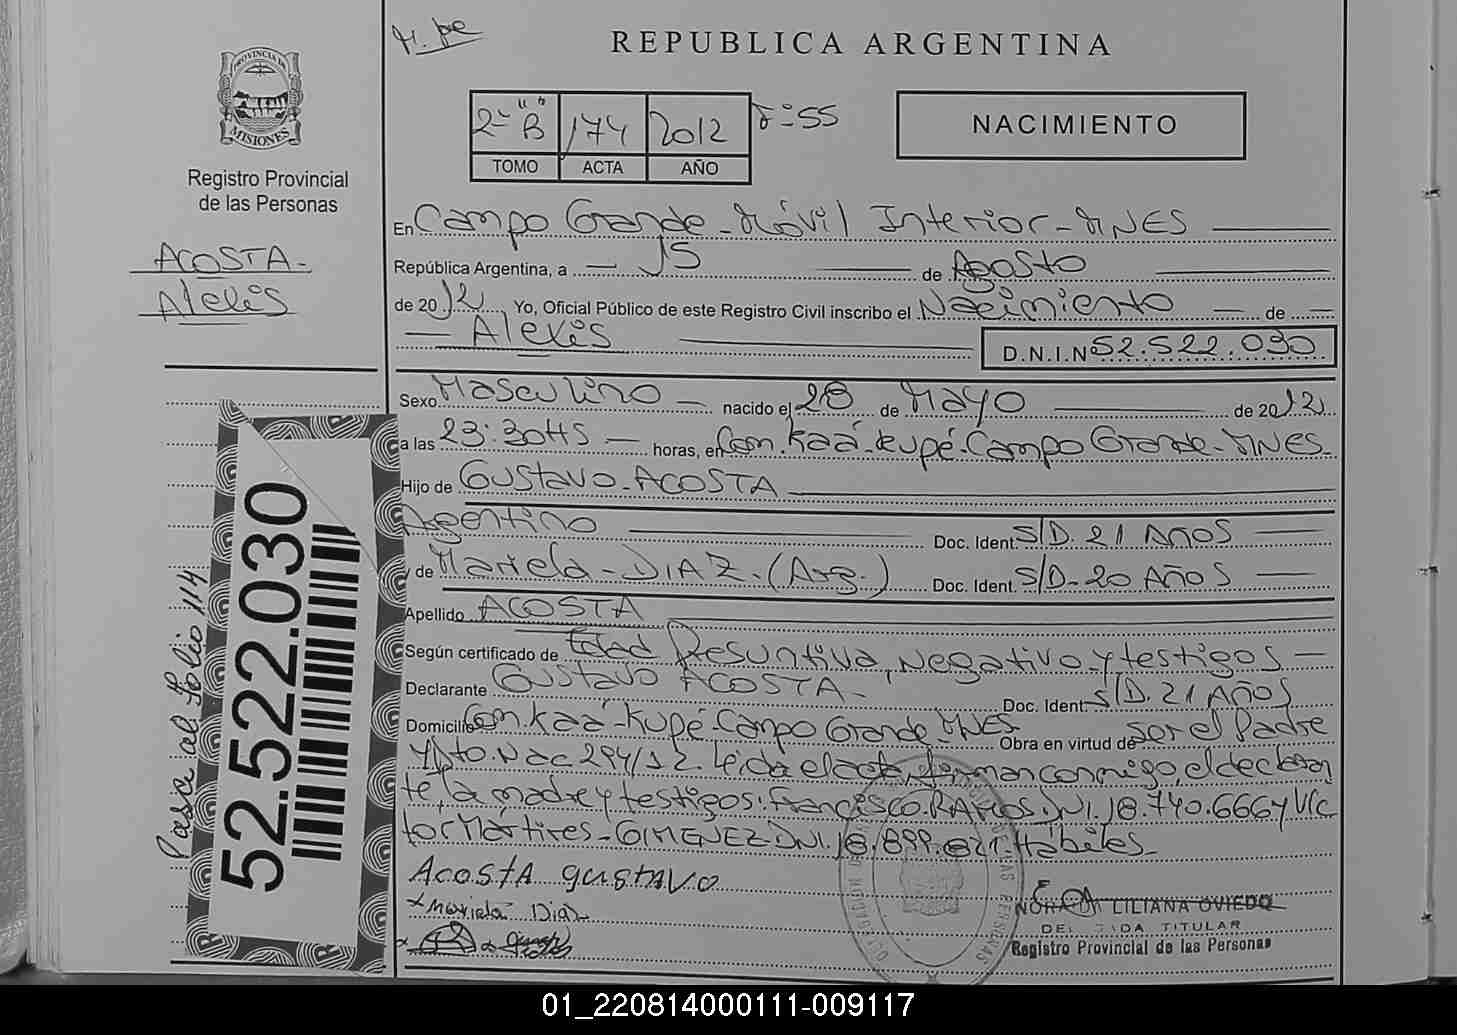 M. pe
REPUBLICA ARGENTINA
PROVINCIA DE
MISIONES
Registro Provincial
de las Personas
2º "B" 174 2012
TOMO ACTA AÑO
NACIMIENTO
ACOSTA-
Alexis
En Campo Grande-Móvil Interior-MNES
República Argentina, a 15 de Agosto
de 2012 Yo, Oficial Público de este Registro Civil inscribo el Nacimiento de
Alexis
D.N.I.N 52.522.030
Sexo Masculino nacido el 28 de Mayo de 2012
a las 23:30HS horas, en Com. Kaá-Kupé-Campo Grande-MNES-
Hijo de Gustavo-ACOSTA
Argentino Doc. Ident. S/D. 21 AÑOS
y de Mariela-DIAZ-(Arg.) Doc. Ident. S/D-20 AÑOS
Apellido ACOSTA
Según certificado de Edad Presuntiva, Negativo y testigos
Declarante Gustavo ACOSTA- Doc. Ident. S/D. 21 AÑOS
Domicilio Com. Kaá-Kupé-Campo Grande-MNES Obra en virtud de ser el Padre
y Dto. Nac 294/12. Leída el acta, firman conmigo, el declaran
te, la madre y testigos: Francisco. RAMOS. DNI. 18.740.666 y Víc
tor Mártires-GIMENEZ-DNI. 18.899.821. Hábiles-
Acosta gustavo
x Mariela Diaz
LILIANA OVIEDO
TITULAR
Registro Provincial de las Personas
52.522.030
Pasa al Folio 114
01_220814000111-009117